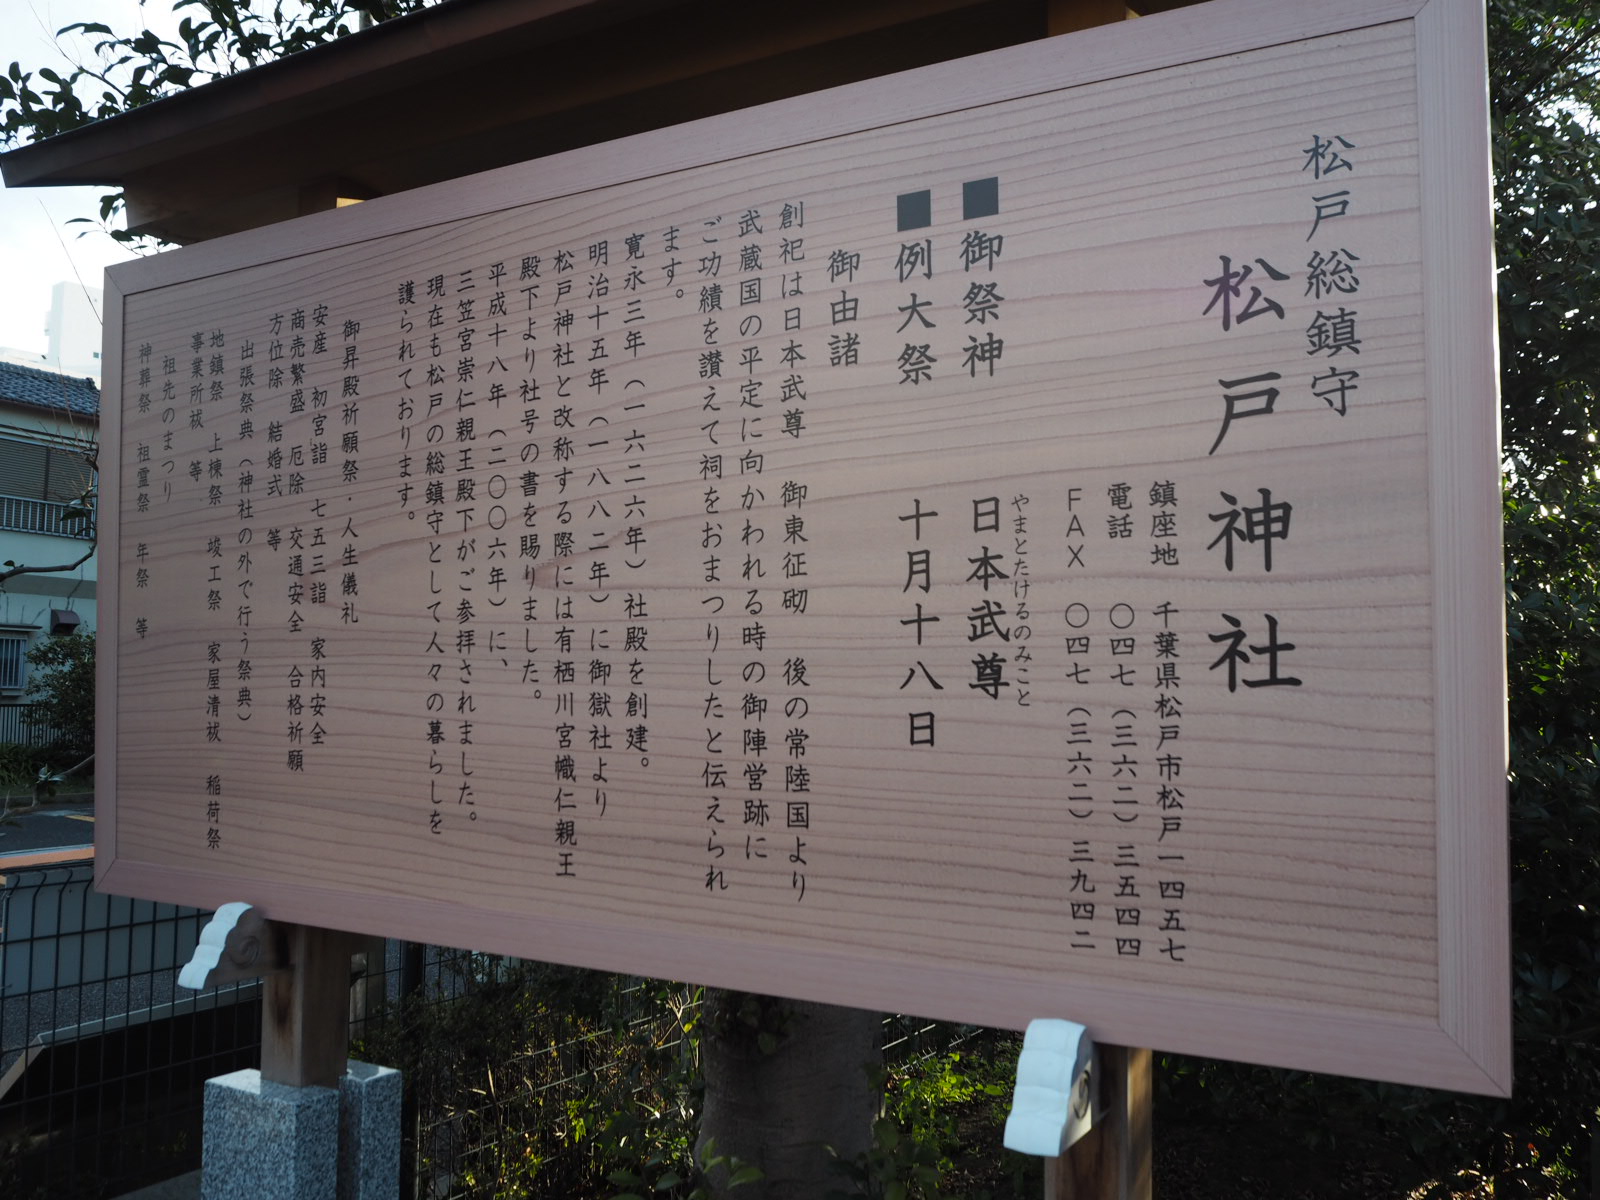 松戸総鎮守
松戸神社
鎮座地　千葉県松戸市松戸一四五七
電話　〇四七（三六二）三五四四
FAX　〇四七（三六二）三九四二
■御祭神　日本武尊
やまとたけるのみこと
■例大祭　十月十八日
御由諸
創祀は日本武尊　御東征砌　後の常陸国より
武蔵国の平定に向かわれる時の御陣営跡に
ご功績を讃えて祠をおまつりしたと伝えられ
ます。
寛永三年（一六二六年）社殿を創建。
明治十五年（一八八二年）に御獄社より
松戸神社と改称する際には有栖川宮幟仁親王
殿下より社号の書を賜りました。
平成十八年（二〇〇六年）に、
三笠宮崇仁親王殿下がご参拝されました。
現在も松戸の総鎮守として人々の暮らしを
護られております。
御昇殿祈願祭・人生儀礼
安産　初宮詣　七五三詣　家内安全
商売繁盛　厄除　交通安全　合格祈願
方位除　結婚式　等
出張祭典（神社の外で行う祭典）
地鎮祭　上棟祭　竣工祭　家屋清祓　稲荷祭
事業所祓　等
祖先のまつり
神葬祭　祖霊祭　年祭　等